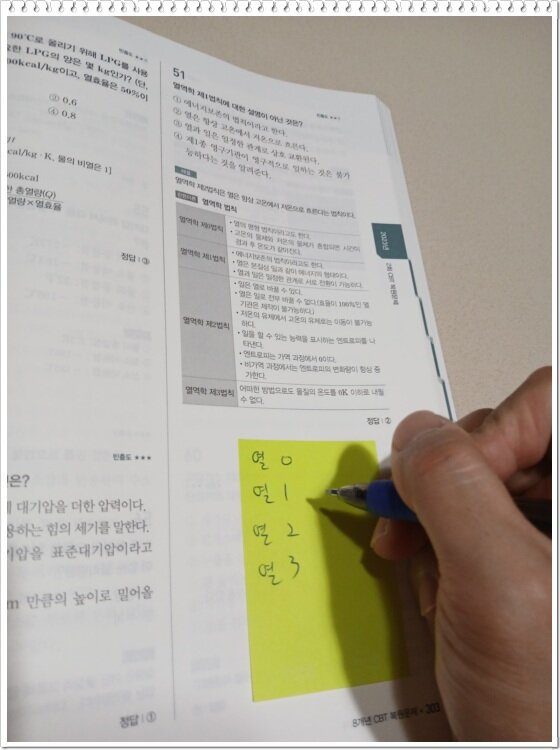 90℃로 올리기 위해 LPG를 사용
요한 LPG의 양은 몇 kg인가? (단,
00kcal/kg이고, 열효율은 50%이
② 0.6
④ 0.8
cal/kg · K, 물의 비열은 1]
500kcal
한 총열량(Q)
열량×열효율
정답 | ③
빈출도 ★★★
은?
에 대기압을 더한 압력이다.
용하는 힘의 세기를 말한다.
기압을 표준대기압이라고
m 만큼의 높이로 밀어올
정답 | ①
51
열역학 제1법칙에 대한 설명이 아닌 것은?
① 에너지보존의 법칙이라고 한다.
② 열은 항상 고온에서 저온으로 흐른다.
③ 열과 일은 일정한 관계로 상호 교환된다.
④ 제1종 영구기관이 영구적으로 일하는 것은 불가
능하다는 것을 알려준다.
해설
열역학 제2법칙은 열은 항상 고온에서 저온으로 흐른다는 법칙이다.
관련이론 열역학 법칙
열역학 제0법칙
• 열의 평형 법칙이라고도 한다.
• 고온의 물체와 저온의 물체가 혼합되면 시간이
경과 후 온도가 같아진다.
열역학 제1법칙
• 에너지보존의 법칙이라고도 한다.
• 열은 본질상 일과 같이 에너지의 형태이다.
• 열과 일은 일정한 관계로 서로 전환이 가능하다.
열역학 제2법칙
• 일은 열로 바꿀 수 있다.
• 열은 일로 전부 바꿀 수 없다.(효율이 100%인 열
기관은 제작이 불가능하다.)
• 저온의 유체에서 고온의 유체로는 이동이 불가능
하다.
• 일을 할 수 있는 능력을 표시하는 엔트로피를 나
타낸다.
• 엔트로피는 가역 과정에서 0이다.
• 비가역 과정에서는 엔트로피의 변화량이 항상 증
가한다.
열역학 제3법칙
어떠한 방법으로도 물질의 온도를 0K 이하로 내릴
수 없다.
정답 | ②
2023년
2회 CBT 복원문제
열 0
열 1
열 2
열 3
8개년 CBT 복원문제 • 303